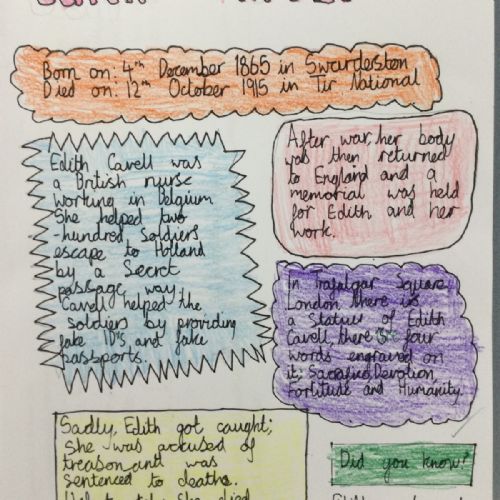 Born on: 4th December 1865 in Swardeston
Died on: 12th October 1915 in Tir National
Edith Cavell was
a British nurse
working in Belgium
She helped two
hundred Soldiers
escape to Holland
by a Secret
passage way.
Cavell helped the
soldiers by providing
fake ID's and fake
passports.
After war, her body
was then returned
to England and a
memorial was held
for Edith and her
work.
In Trafalgar Square,
London, there is
a Statue of Edith
Cavell, there is four
words engraved on
it; Sacrifice, Devotion,
Fortitude and Humanity.
Sadly, Edith got caught;
She was accused of
treason and was
sentenced to deaths.
She died
Did you know?